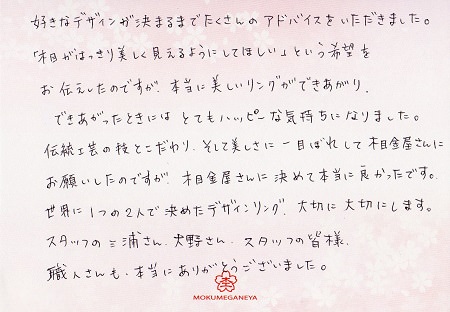 好きなデザインが決まるまでたくさんのアドバイスをいただきました。
「木目がはっきり美しく見えるようにしてほしい」という希望を
お伝えしたのですが、本当に美しいリングができあがり、
できあがったときには とてもハッピーな気持ちになりました。
伝統工芸の技とこだわり、そして美しさに一目ぼれして杢目金屋さんに
お願いしたのですが、杢目金屋さんに決めて本当に良かったです。
世界に1つの2人で決めたデザインリング、大切に大切にします。
スタッフの三浦さん、大野さん、スタッフの皆様、
職人さんも、本当にありがとうございました。
MOKUMEGANEYA